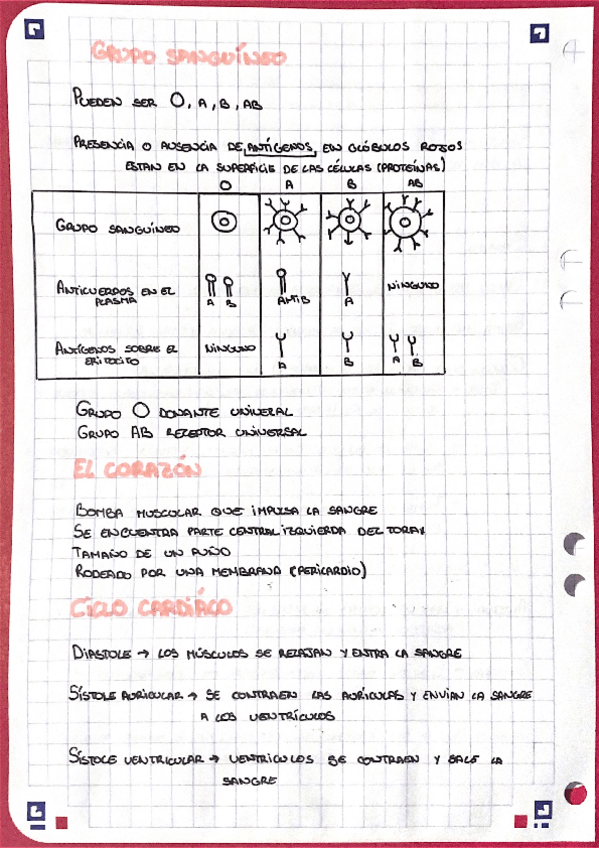 GRUPO SANGUÍNEO
PUEDEN SER O, A, B, AB
PRESENCIA O AUSENCIA DE ANTÍGENOS, EN GLÓBULOS ROJOS
ESTAN EN LA SUPERFICIE DE LAS CÉLULAS (PROTEÍNAS)
O A B AB
GRUPO SANGUÍNEO
ANTICUERPOS EN EL PLASMA A B ANTIB A NINGUNO
ANTÍGENOS SOBRE EL ERITOCITO NINGUNO A B A B
GRUPO O DONANTE UNIVERAL
GRUPO AB RECEPTOR UNIVERSAL
EL CORAZÓN
BOMBA MUSCULAR QUE IMPULSA LA SANGRE
SE ENCUENTRA PARTE CENTRAL IZQUIERDA DEL TORAX
TAMAÑO DE UN PUÑO
RODEADO POR UNA MEMBRANA (PERICARDIO)
CICLO CARDIÁCO
DIASTOLE → LOS MÚSCULOS SE RELAJAN Y ENTRA LA SANGRE
SÍSTOLE AURICULAR → SE CONTRAEN LAS AURÍCULAS Y ENVÍAN LA SANGRE
A LOS VENTRÍCULOS
SÍSTOLE VENTRICULAR → VENTRICULOS SE CONTRAEN Y SALE LA
SANGRE